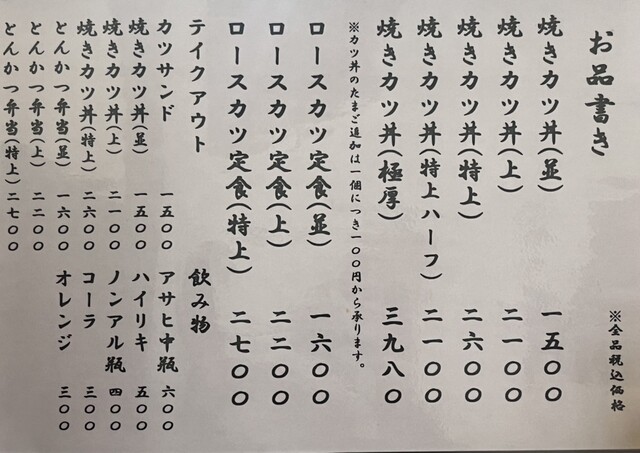 お品書き
※全品税込価格
焼きカツ丼(並) 一五〇〇
焼きカツ丼(上) 二一〇〇
焼きカツ丼(特上) 二六〇〇
焼きカツ丼(特上ハーフ) 二一〇〇
焼きカツ丼(極厚) 三九八〇
※カツ丼のたまご追加は一個につき一〇〇円から承ります。
ロースカツ定食(並) 一六〇〇
ロースカツ定食(上) 二二〇〇
ロースカツ定食(特上) 二七〇〇
テイクアウト
カツサンド 一五〇〇
焼きカツ丼(並) 一五〇〇
焼きカツ丼(上) 二一〇〇
焼きカツ丼(特上) 二六〇〇
とんかつ弁当(並) 一六〇〇
とんかつ弁当(上) 二二〇〇
とんかつ弁当(特上) 二七〇〇
飲み物
アサヒ中瓶 六〇〇
ハイリキ 五〇〇
ノンアル瓶 四〇〇
コーラ 三〇〇
オレンジ 三〇〇